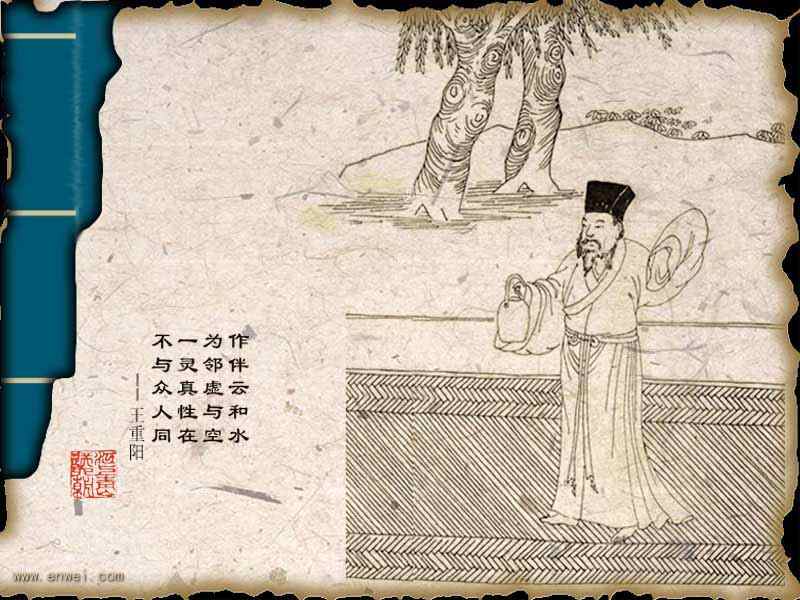 作伴云和水
为邻虚与空
一灵真性在
不与众人同
——王重阳
www.enwei.com